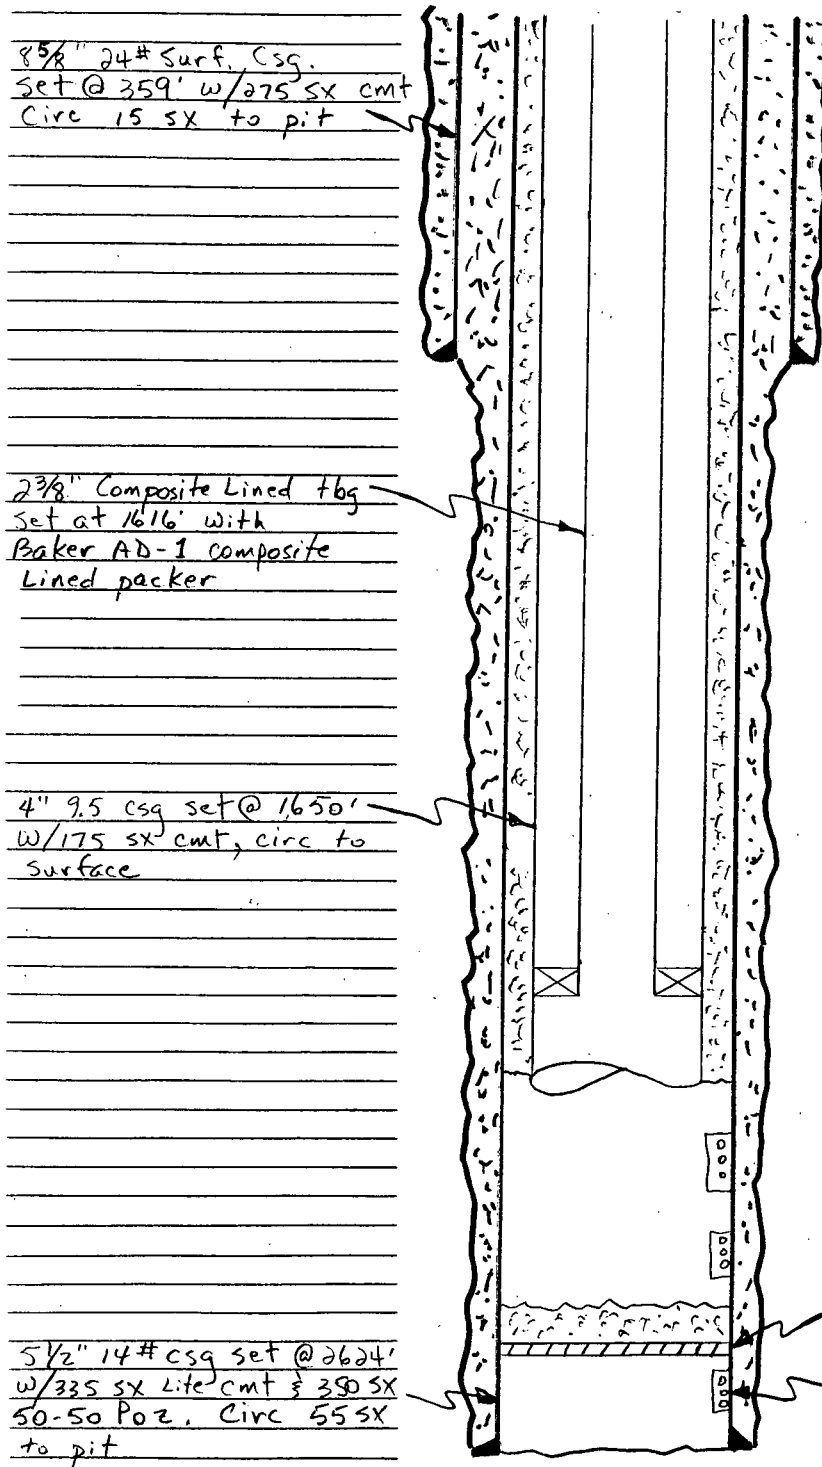 8 5/8" 24# Surf. Csg.
Set @ 359' w/275 sx cmt
Circ 15 sx to pit
2 3/8" Composite Lined tbg
set at 1616' with
Baker AD-1 composite
Lined packer
4" 9.5 csg set @ 1650'
W/175 sx cmt, circ to
surface
5 1/2" 14# csg set @ 2624'
w/335 sx Lite cmt & 350 sx
50-50 Poz. Circ 55 sx
to pit